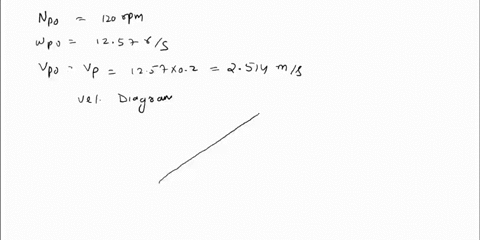 N_PO = 120 rpm
ω_PO = 12.57 r/s
V_PO = V_P = 12.57 x 0.2 = 2.514 m/s
Vel. Diagram